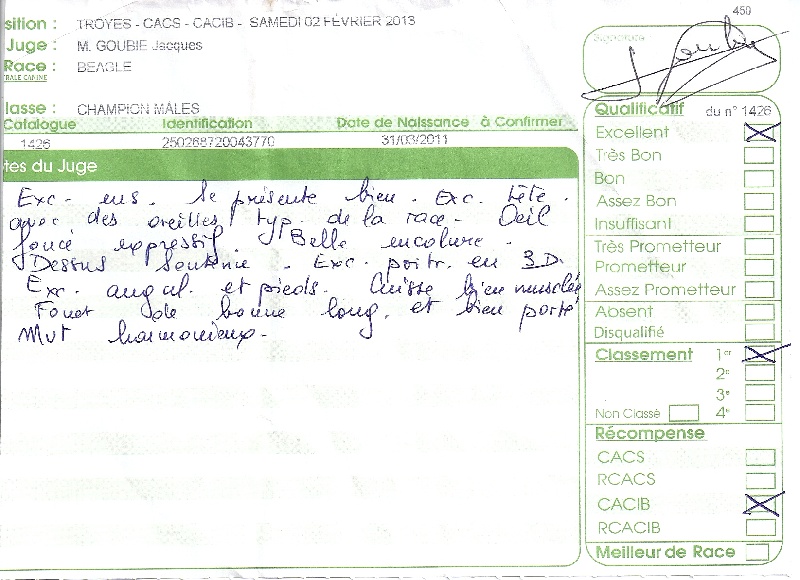 450
sition : TROYES - CACS - CACIB - SAMEDI 02 FÉVRIER 2013
Juge : M. GOUBIE Jacques
Race : BEAGLE
TRALE CANINE
lasse : CHAMPION MALES
Catalogue Identification Date de Naissance à Confirmer
1426 250268720043770 31/03/2011
tes du Juge
Exc. ens. Se présente bien. Exc. tête.
avec des oreilles typ. de la race. Oeil
foncé expressif. Belle encolure.
Dessus soutenu. Exc. poitr. en 3D.
Exc. angul. et pieds. Cuisse bien musclée
Fouet de bonne long. et bien porté
Mvt harmonieux.
Signature :
Qualificatif du n° 1426
Excellent
Très Bon
Bon
Assez Bon
Insuffisant
Très Prometteur
Prometteur
Assez Prometteur
Absent
Disqualifié
Classement 1er
2e
3e
Non Classé 4e
Récompense
CACS
RCACS
CACIB
RCACIB
Meilleur de Race